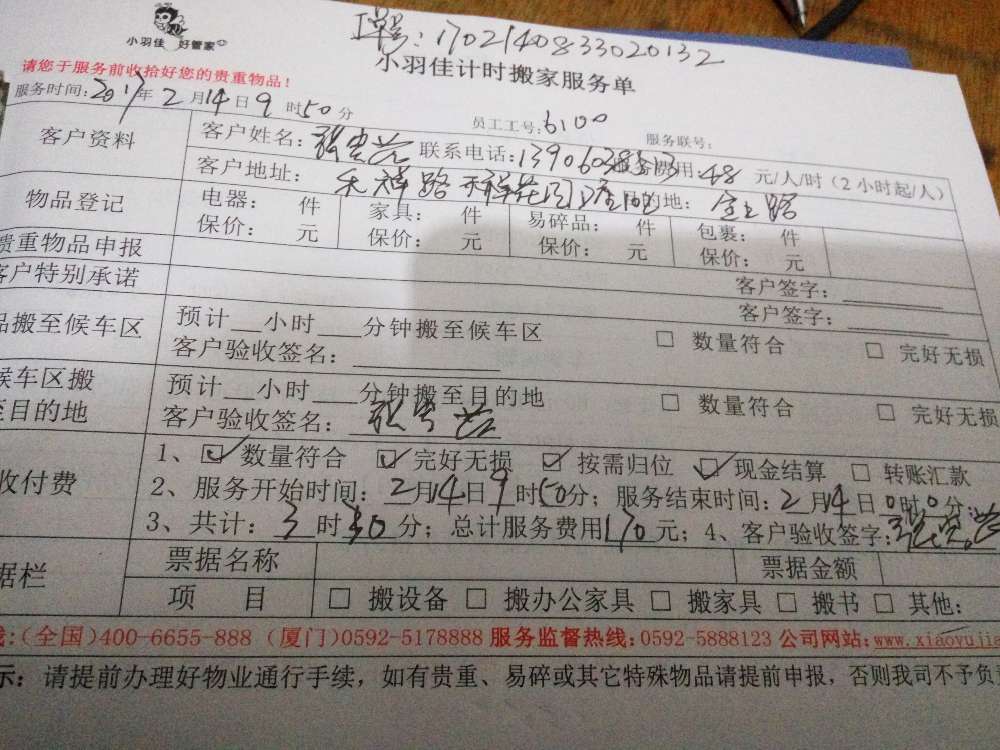 小羽佳 好管家
单号:1702140833020132
小羽佳计时搬家服务单
请您于服务前收拾好您的贵重物品!
服务时间:2017年2月14日9时50分 员工工号:6100 服务联号:
客户资料 客户姓名: 联系电话: 服务费用:48元/人/时(2小时起/人)
客户地址: 目的地:
物品登记 电器: 件 家具: 件 易碎品: 件 包裹: 件
保价: 元 保价: 元 保价: 元 保价: 元
贵重物品申报 客户签字:
客户特别承诺 客户签字:
品搬至候车区 预计__小时___分钟搬至候车区 □ 数量符合 □ 完好无损
客户验收签名:
候车区搬至目的地 预计__小时___分钟搬至目的地 □ 数量符合 □ 完好无损
客户验收签名:
收付费 1、☑数量符合 ☑完好无损 ☑按需归位 ☑现金结算 □ 转账汇款
2、服务开始时间:2月14日9时50分;服务结束时间:2月14日0时0分;
3、共计:3时30分;总计服务费用170元;4、客户验收签字:
据栏 票据名称 票据金额
项 目 □ 搬设备 □ 搬办公家具 □ 搬家具 □ 搬书 □ 其他:
(全国)400-6655-888 (厦门)0592-5178888 服务监督热线:0592-5888123 公司网站:www.xiaoyujia
示:请提前办理好物业通行手续,如有贵重、易碎或其它特殊物品请提前申报,否则我司不予负责